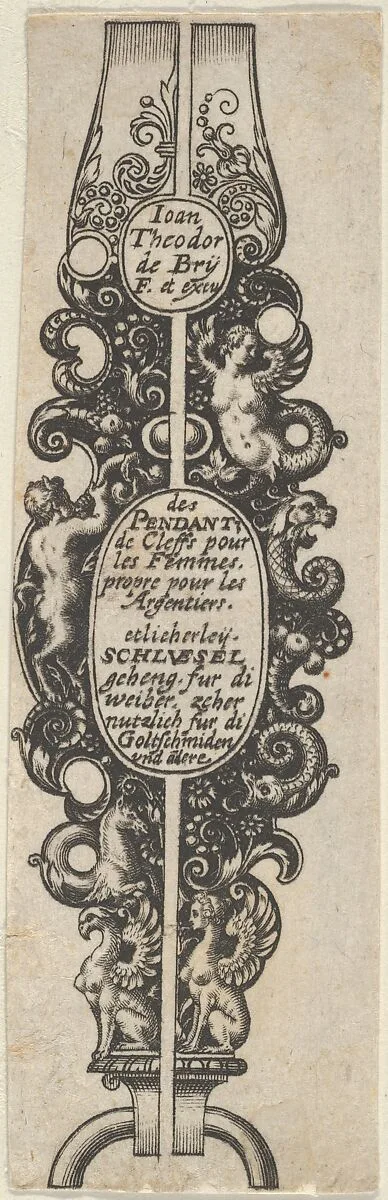 Ioan
Theodor
de Brÿ
F. et excu
des
PENDANTZ
de Cleffs pour
les Femmes.
propre pour les
Argentiers.
etlicherleÿ.
SCHLVESEL
geheng. fur di
weiber. zcher
nutzlich fur di
Goltschmiden
vnd ãdere